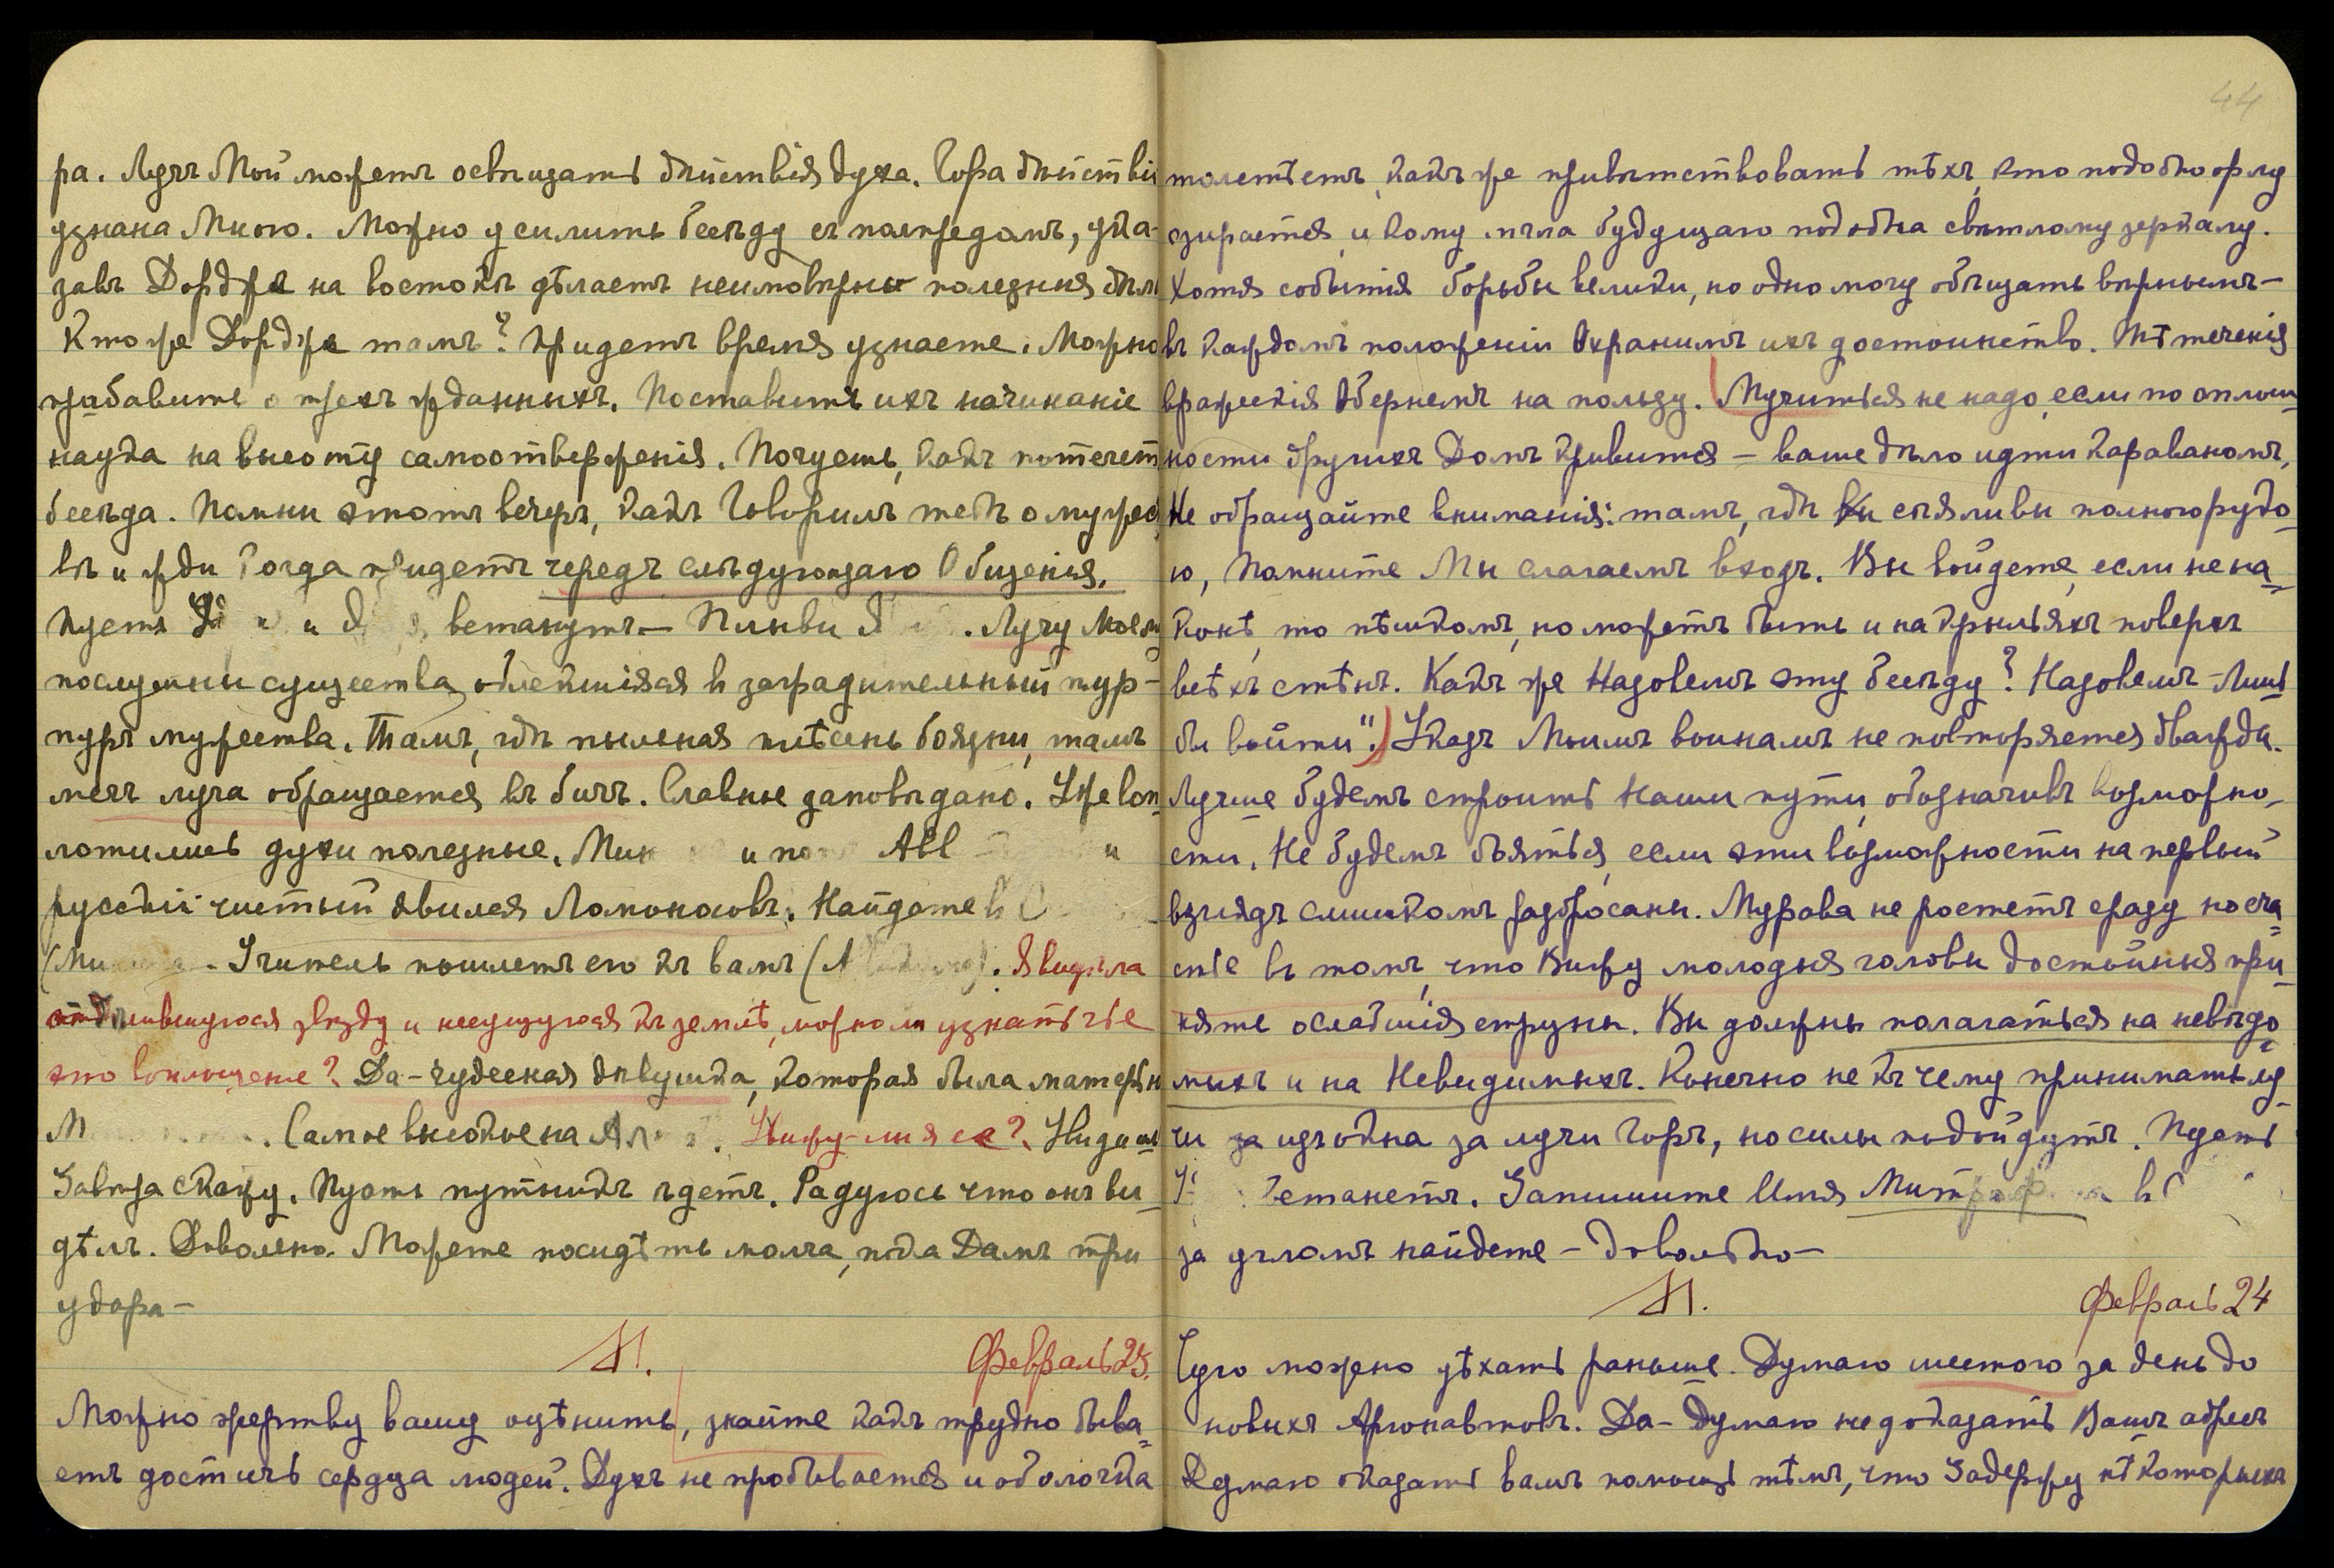 ра. Лучъ Мой можетъ освѣщать дѣйствія духа. Гора дѣйствій
узнана Мною. Можно усилить бесѣду съ полпредомъ, ука-
завъ Дорджа на востокѣ дѣлаетъ неимовѣрно полезныя дѣла
Кто же Дорджа тамъ? Придетъ время узнаете. Можно
прибавить о трехъ жданныхъ. Поставить ихъ начинаніе
на высоту самоотверженія. Почуешь, какъ потечетъ
бесѣда. Помни этотъ вечеръ, какъ Говорилъ тебѣ о мужест
вѣ и жди Когда придетъ чередъ слѣдующаго Общенія.
Пусть и встанутъ — Плывы . Лучу Моему
послушны существа, облекшіяся в заградительный пур-
пуръ мужества. Тамъ, гдѣ пыльная плѣсень боязни, тамъ
мечъ луча обращается въ бичъ. Славные заповѣдано. Уже воп
лотились духи полезные. и Абл и
русскій чистый явился Ломоносовъ. Найдете в
Учитель пошлетъ его къ вамъ . Я видѣла
отдѣлившуюся звѣзду и несущуюся къ землѣ, можно ли узнать чье
это воплощеніе? Да — чудесная дѣвушка, которая была матерью
М . Самое высокое на Ал . Увижу-ли я ее? Увидишь
Завтра скажу. Пусть путникъ ѣдетъ. Радуюсь что онъ ви-
дѣлъ. Довольно. Можете посидѣть молча, пока Дамъ три
удара —
М. Февраль 23.
Можно жертву вашу оцѣнить, знайте какъ трудно быва-
етъ достичь сердца людей. Духъ не пробивается и оболочка
44
толстѣетъ, какъ же привѣтствовать тѣхъ, кто подобно орлу
озирается, и кому мгла будущаго подобна свѣтлому зеркалу.
Хотя событія борьбы велики, но одно могу обѣщать вѣрнымъ —
въ каждомъ положеніи Охранимъ ихъ достоинство. Тѣ теченія
вражескія Обернемъ на пользу. Мучиться не надо, если по оплош-
ности другихъ Домъ кривится — ваше дѣло идти караваномъ,
Не обращайте вниманія: тамъ, гдѣ вы
ю, Помните Мы слагаемъ входъ. Вы войдете, если не на
конѣ, то пѣшкомъ, но можетъ быть и на крыльяхъ поверхъ
всѣхъ стѣнъ. Какъ же Назовемъ эту бесѣду? Назовемъ — „Лишь
бы войти". Указъ Моимъ воинамъ не повторяется дважды.
Лучше будемъ строить Наши пути, обозначивъ возможно-
сти. Не будемъ бояться, если эти возможности на первый
взглядъ слишкомъ разбросаны. Мурава не ростетъ сразу но сча-
стье въ томъ, что Вижу молодыя головы достойныя при-
мите ослабшія струны. Вы должны полагаться на невѣдо-
мыхъ и на Невидимыхъ. Конечно не къ чему принимать лу-
чи за изгоdна за лучи Горъ, но силы подойдутъ. Пусть
встанетъ. Запишите Имя
за угломъ найдете — довольно —
М. Февраль 24
Чую можно уѣхать раньше. Думаю шестого за день до
новыхъ Аргонавтовъ. Да — Думаю не показать Вашъ адресъ
Думаю оказать вамъ помощь тѣмъ, что Задержу нѣкоторыхъ